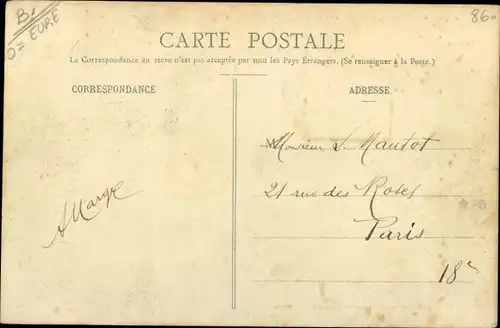 B.
O= EURE
86
CARTE POSTALE
La Correspondance au recto n'est pas acceptée par tous les Pays Étrangers. (Se renseigner à la Poste.)
CORRESPONDANCE
ADRESSE
Monsieur L. Nautot
21 rue des Roses
Paris
18e